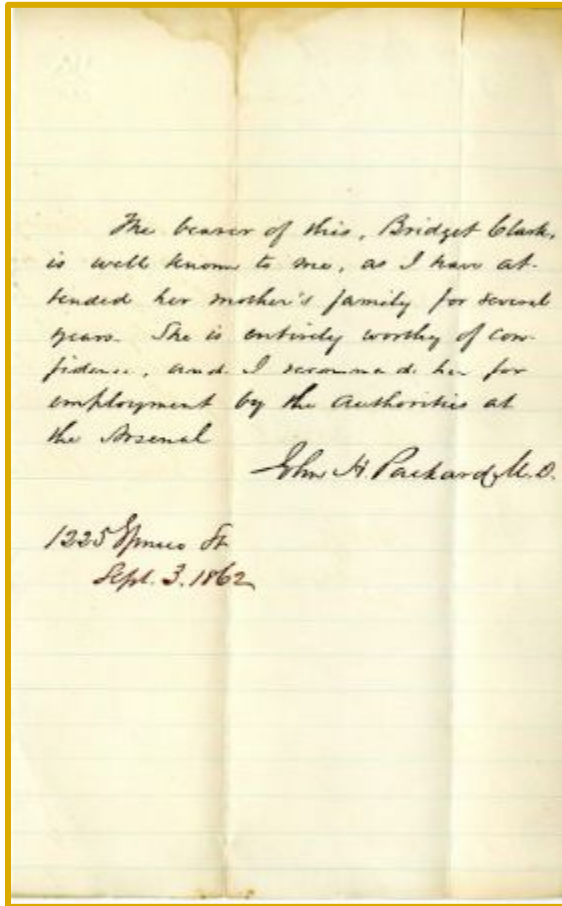 The bearer of this, Bridget Clark,
is well known to me, as I have at-
tended her mother's family for several
years. She is entirely worthy of con-
fidence, and I recommend her for
employment by the authorities at
the Arsenal
John H. Packard, M.D.
1225 Spruce St
Sept. 3. 1862